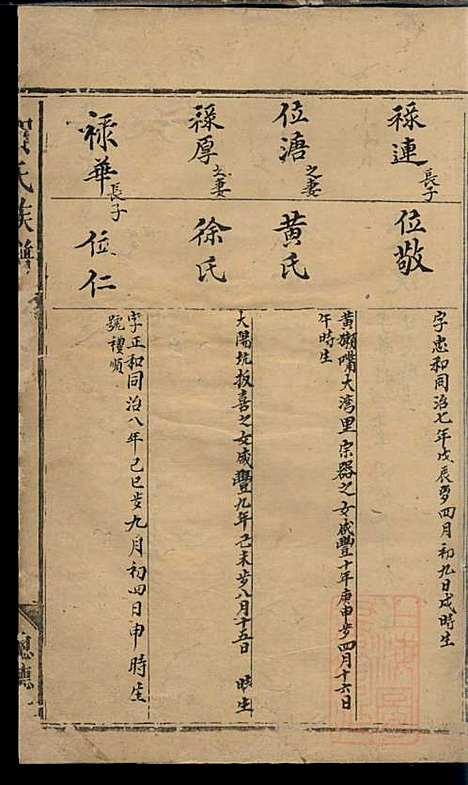 祿連長子
位敬
字忠和同治七年戊辰歲四月初九日戌時生
位溏之妻
黄氏
黄獺嘴大湾里宗器之女咸豐十年庚申歩四月十六日
午時生
祿厚之妻
徐氏
大陽坑扳喜之女咸豐九年己未歩八月十五日 時生
祿華長子
位仁
字正和同治八年己巳歩九月初四日申時生
號禮順
氏族譜